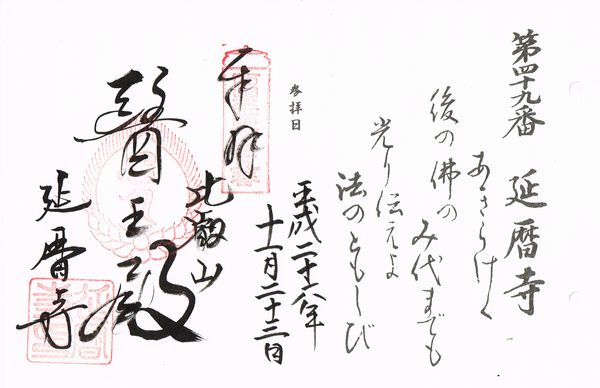 第四十九番 延暦寺
あきらけく
後の佛の
み代までも
光り伝えよ
法のともしび
参拝日
平成二十八年
十一月二十三日
奉拝
比叡山
醫王殿
延暦寺